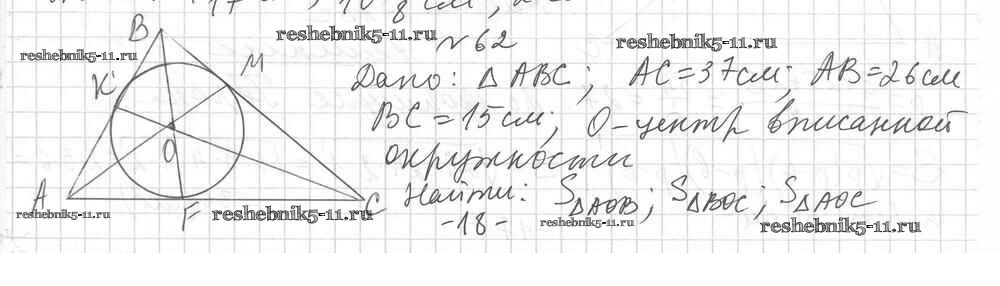 reshebnik5-11.ru
№62
reshebnik5-11.ru
reshebnik5-11.ru
B
M
K
O
A
F
C
Дано: △ABC; AC=37см; AB=26см
BC=15см; O-центр вписанной
окружности
Найти: S△AOB; S△BOC; S△AOC
-18-
reshebnik5-11.ru
reshebnik5-11.ru
reshebnik5-11.ru
reshebnik5-11.ru